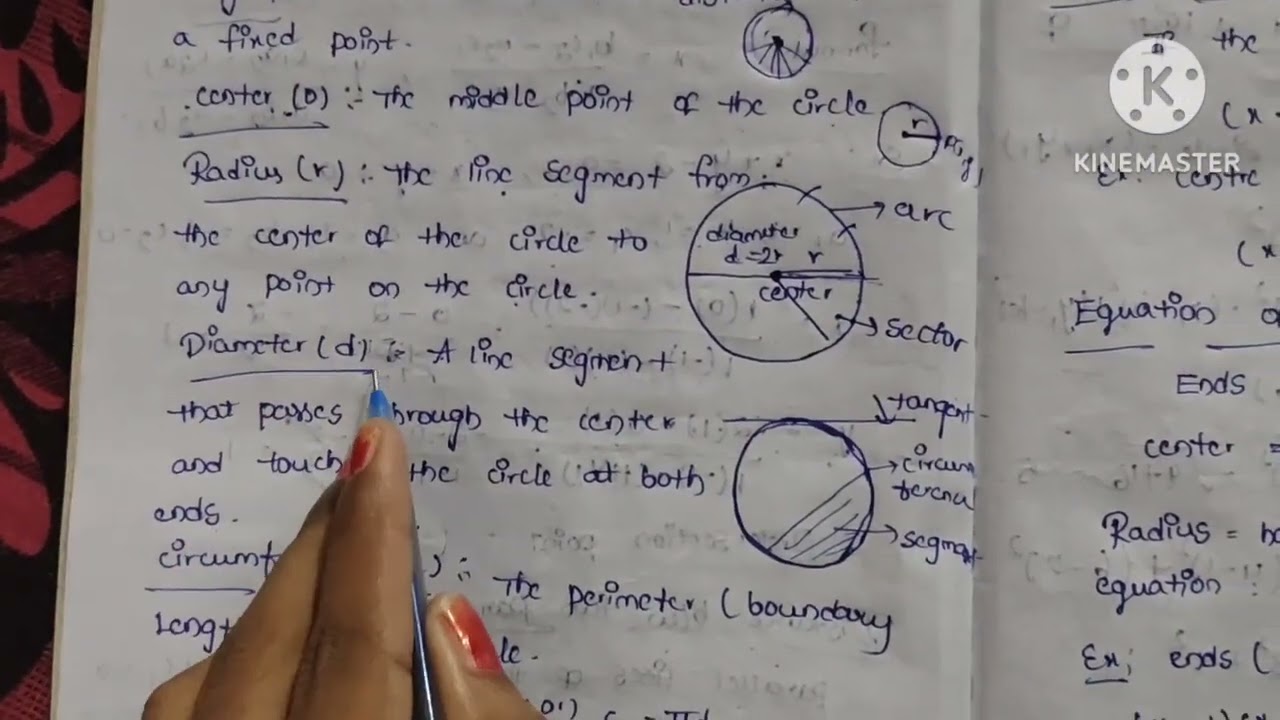 a fixed point.
center (O) :- The middle point of the circle
Radius (r) :- The line segment from
the center of the circle to
any point on the circle.
Diameter (d) :- A line segment
that passes through the center
and touch the circle at both
ends.
circumf
:- The perimeter (boundary
Leng
r
arc
diameter
d = 2r r
center
sector
tangent
circum
ference
segment
the
(x -
Ex: centre
(x
Equation
Ends
center =
Radius =
equation :
Ex; ends (
K
KINEMASTER